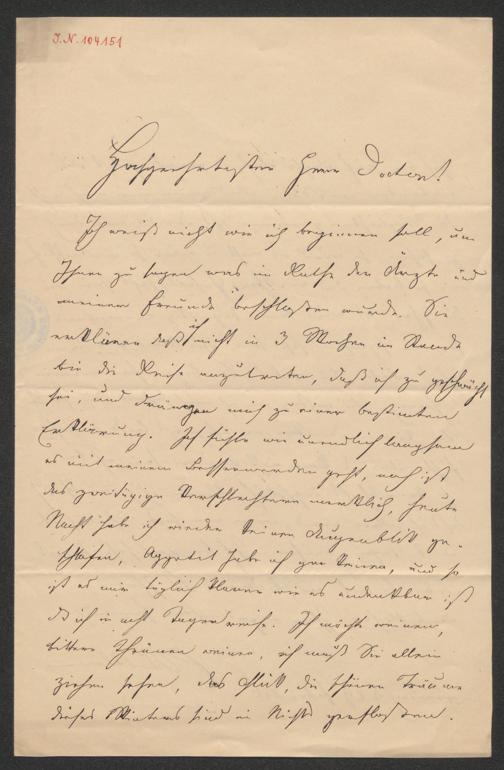 I.N. 104151
Hochgeehrtester Herr Doctor!
Ich weiß nicht wie ich beginnen soll, um
Ihnen zu sagen was im Rathe der Ärzte und
meiner Freunde beschlossen wurde. Sie
erklären daß ich nicht in 3 Wochen im Stande
bin die Reise anzutreten, daß ich zu geschwächt
sei, und drängen mich zu einer bestimten
Erklärung. Ich fühle wie unendlich langsam
es mit meinem Besserwerden geht, noch ist
das zweitägige Verschlechtern merklich, heute
Nacht habe ich wieder keinen Augenblick ge-
schlafen, Appetit habe ich gar keinen, und so
ist es mir täglich klarer wie es undenkbar ist
daß ich in acht Tagen reise. Ich möchte weinen,
bittere Thränen weinen, ich muß Sie allein
ziehen sehen, das Glück, die schönen Träume
dieses Winters sind in Nichts zerflossen.